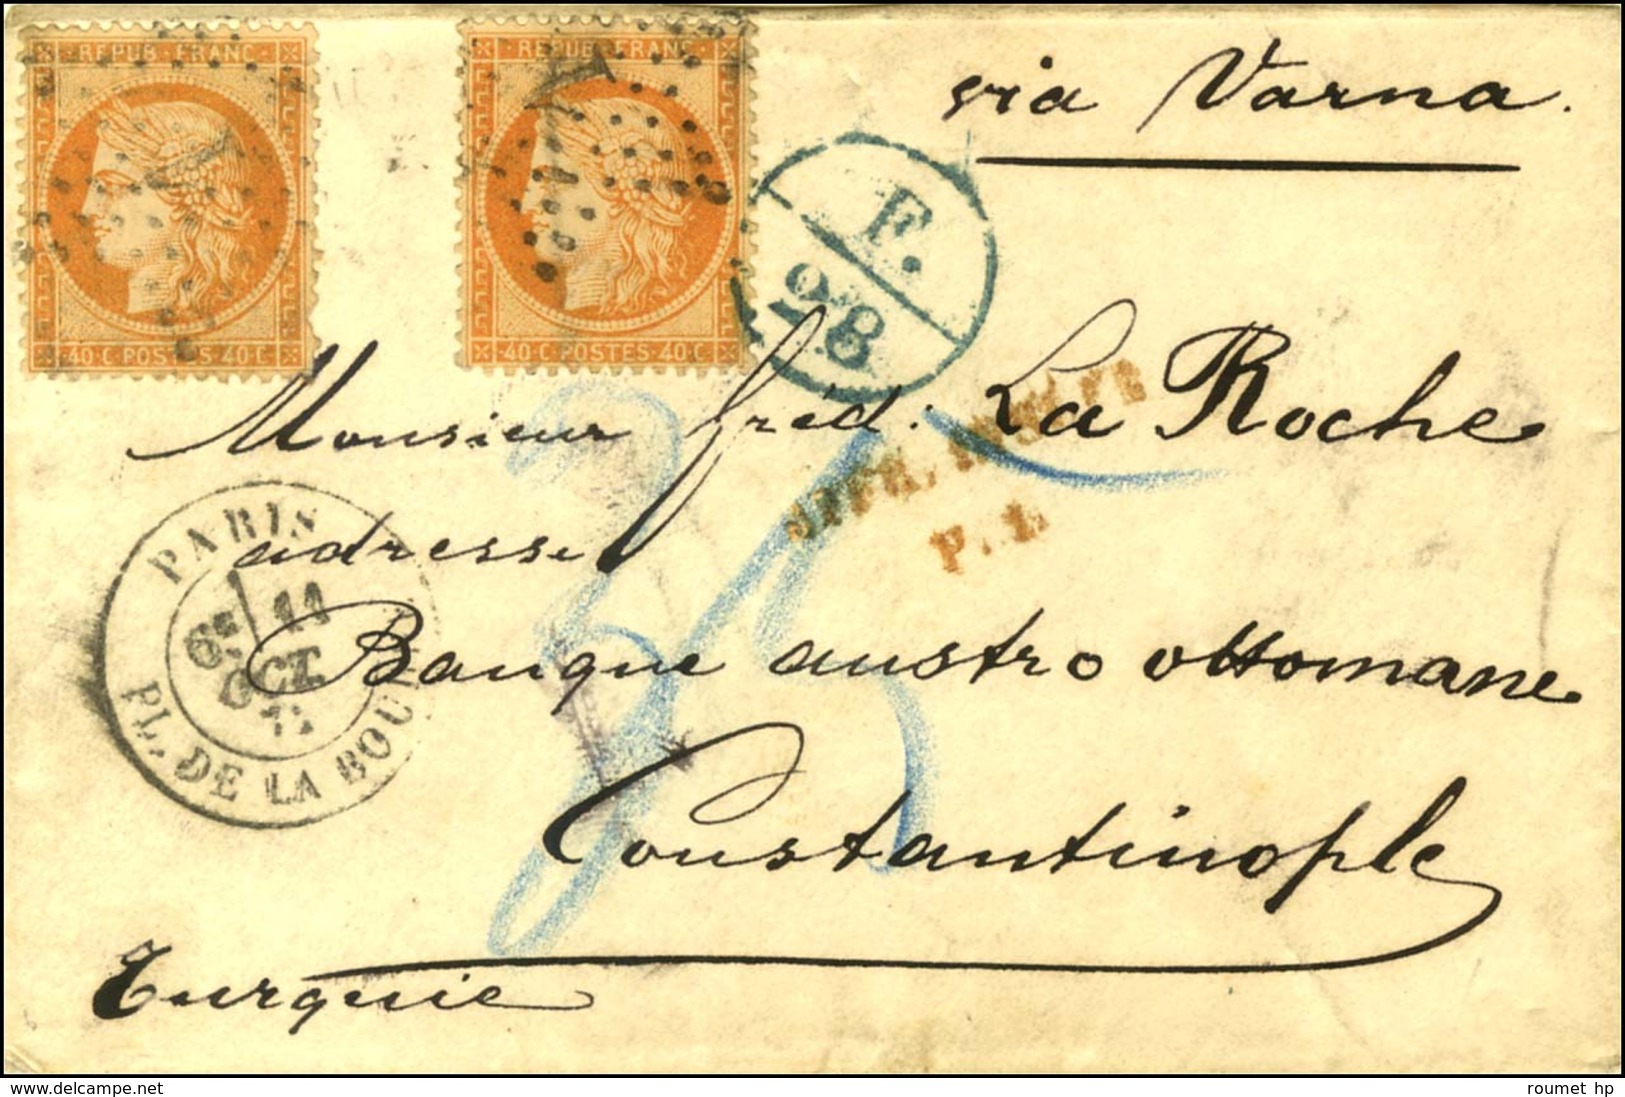 REPUB. FRANC.
40.C POSTES.40.C
REPUB. FRANC.
1
40.C POSTES.40.C
via Varna.
F.
28
Monsieur fréd: La Roche
adresse
P.D.
Banque austro ottomane
Constantinople
Turquie
PARIS
6E 11
OCT.
PL. DE LA BOU
35
www.delcampe.net
roumet hp